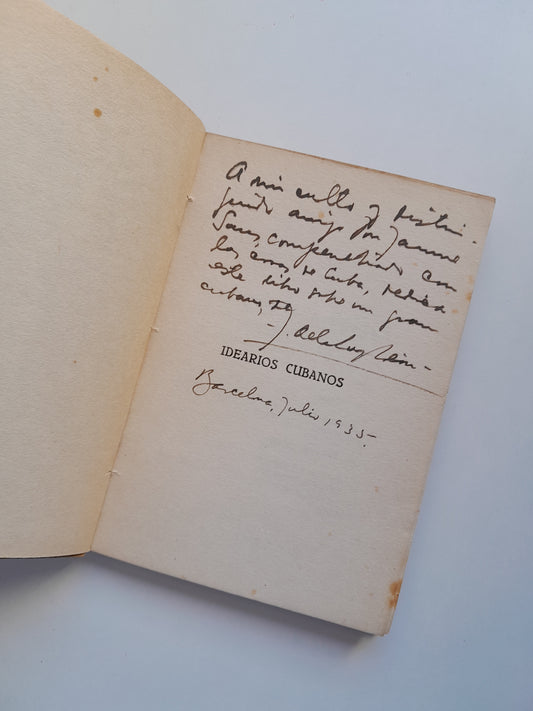 A mi culto y distin-
guido amigo Don Jaume
Sans, compenetrado con
las cosas de Cuba, dedica
este libro sobre un gran
cubano, su
J. de la Luz León-
IDEARIOS CUBANOS
Barcelona, Julio 1935.